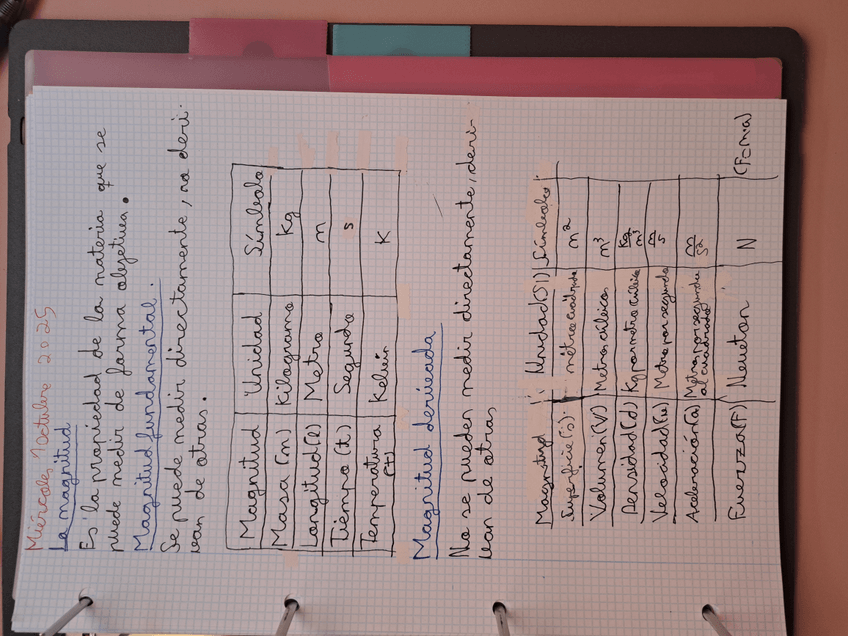 Miércoles 1 Octubre 2025
La magnitud
Es la propiedad de la materia que se
puede medir de forma objetiva.
Magnitud fundamental.
Se puede medir directamente, no deri-
van de otras.
Magnitud Unidad Símbolo
Masa (m) Kilogramo kg
Longitud (l) Metro m
Tiempo (t) Segundo s
Temperatura (T) Kelvin K
Magnitud derivada
No se pueden medir directamente, deri-
van de otras
Magnitud Unidad (SI) Símbolo
Superficie (s). metro cuadrado m²
Volumen (V) Metro cúbico m³
Densidad (d) Kg por metro cúbico kg/m³
Velocidad (v) Metro por segundo m/s
Aceleración (a) Metro por segundo al cuadrado m/s²
Fuerza (F) Newton N (F=m·a)